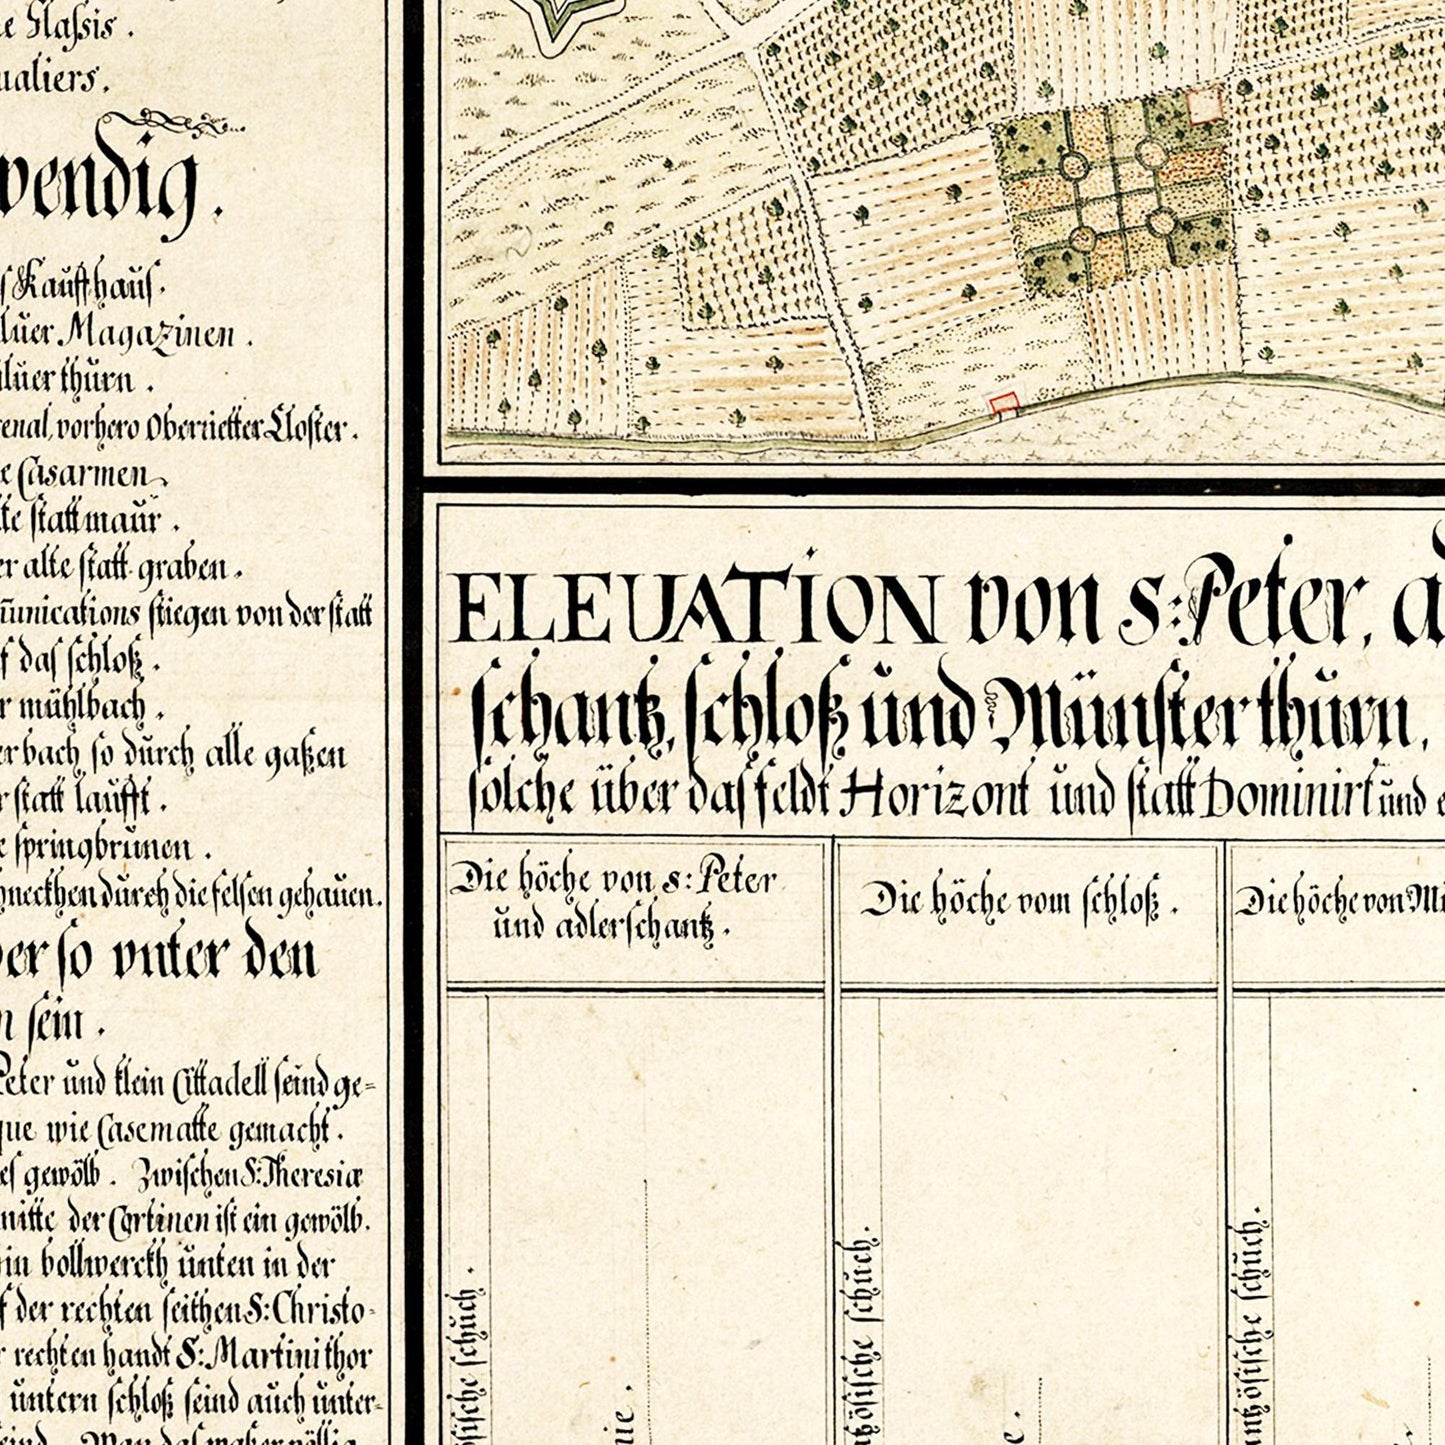 Glaſsis .
ualiers .
wendig .
Kauffhauſ .
Magazinen .
thurn .
vorhero Oberrietter Cloſter .
Casarmen
ſtattmaur .
alte ſtatt graben .
ſtiegen von der ſtatt
das ſchloß .
mühlbach .
bach, ſo durch alle gaßen
ſtatt laufft .
ſpringbrunen .
durch die felſen gehauen .
ſo vnter den
ſein .
Peter und klein Cittadell ſeind ge=
wie Casematte gemacht .
gewölb . Zwiſchen S: Thereſiæ
der Cortinen iſt ein gewölb .
bollwerckh unten in der
der rechten ſeithen S: Chriſto-
rechten handt S: Martini thor
untern ſchloß ſeind auch unter-
ELEUATION von S: Peter, a
ſchantz, ſchloß und Münſter thurn,
ſolche über das feldt Horizont und ſtatt Dominirt und
Die höche von S: Peter
und adlerſchantz .
Die höche vom ſchloß .
Die höche von Mü
ſchuch .
ſchuch .
ſchuch .